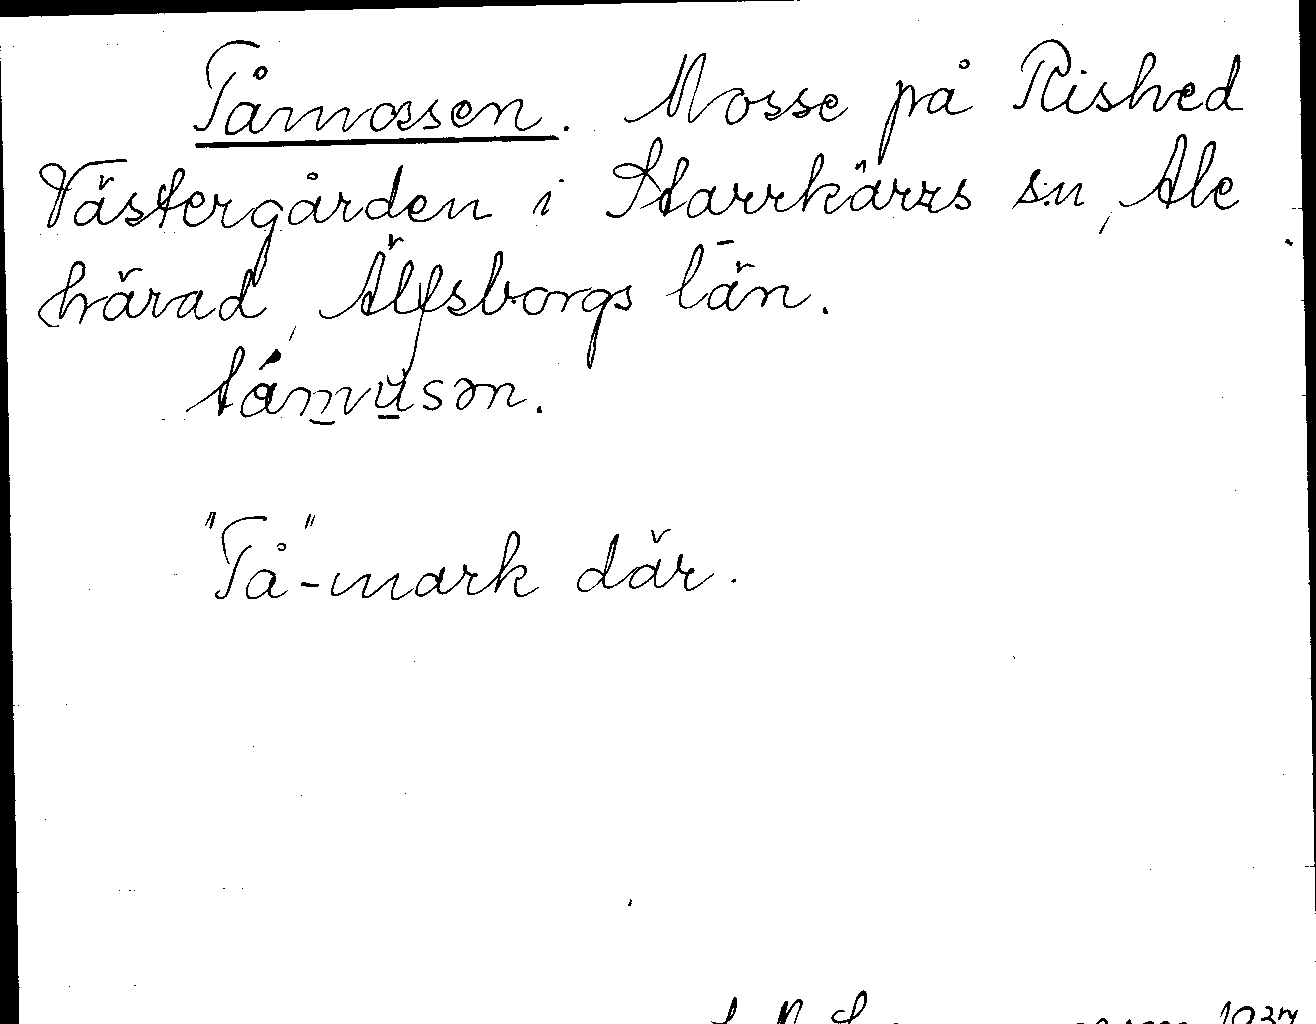 Tåmossen. Mosse på Rished
Västergården i Starrkärrs sn, Ale
härad, Älfsborgs län.
támusən.
"Tå"-mark där.